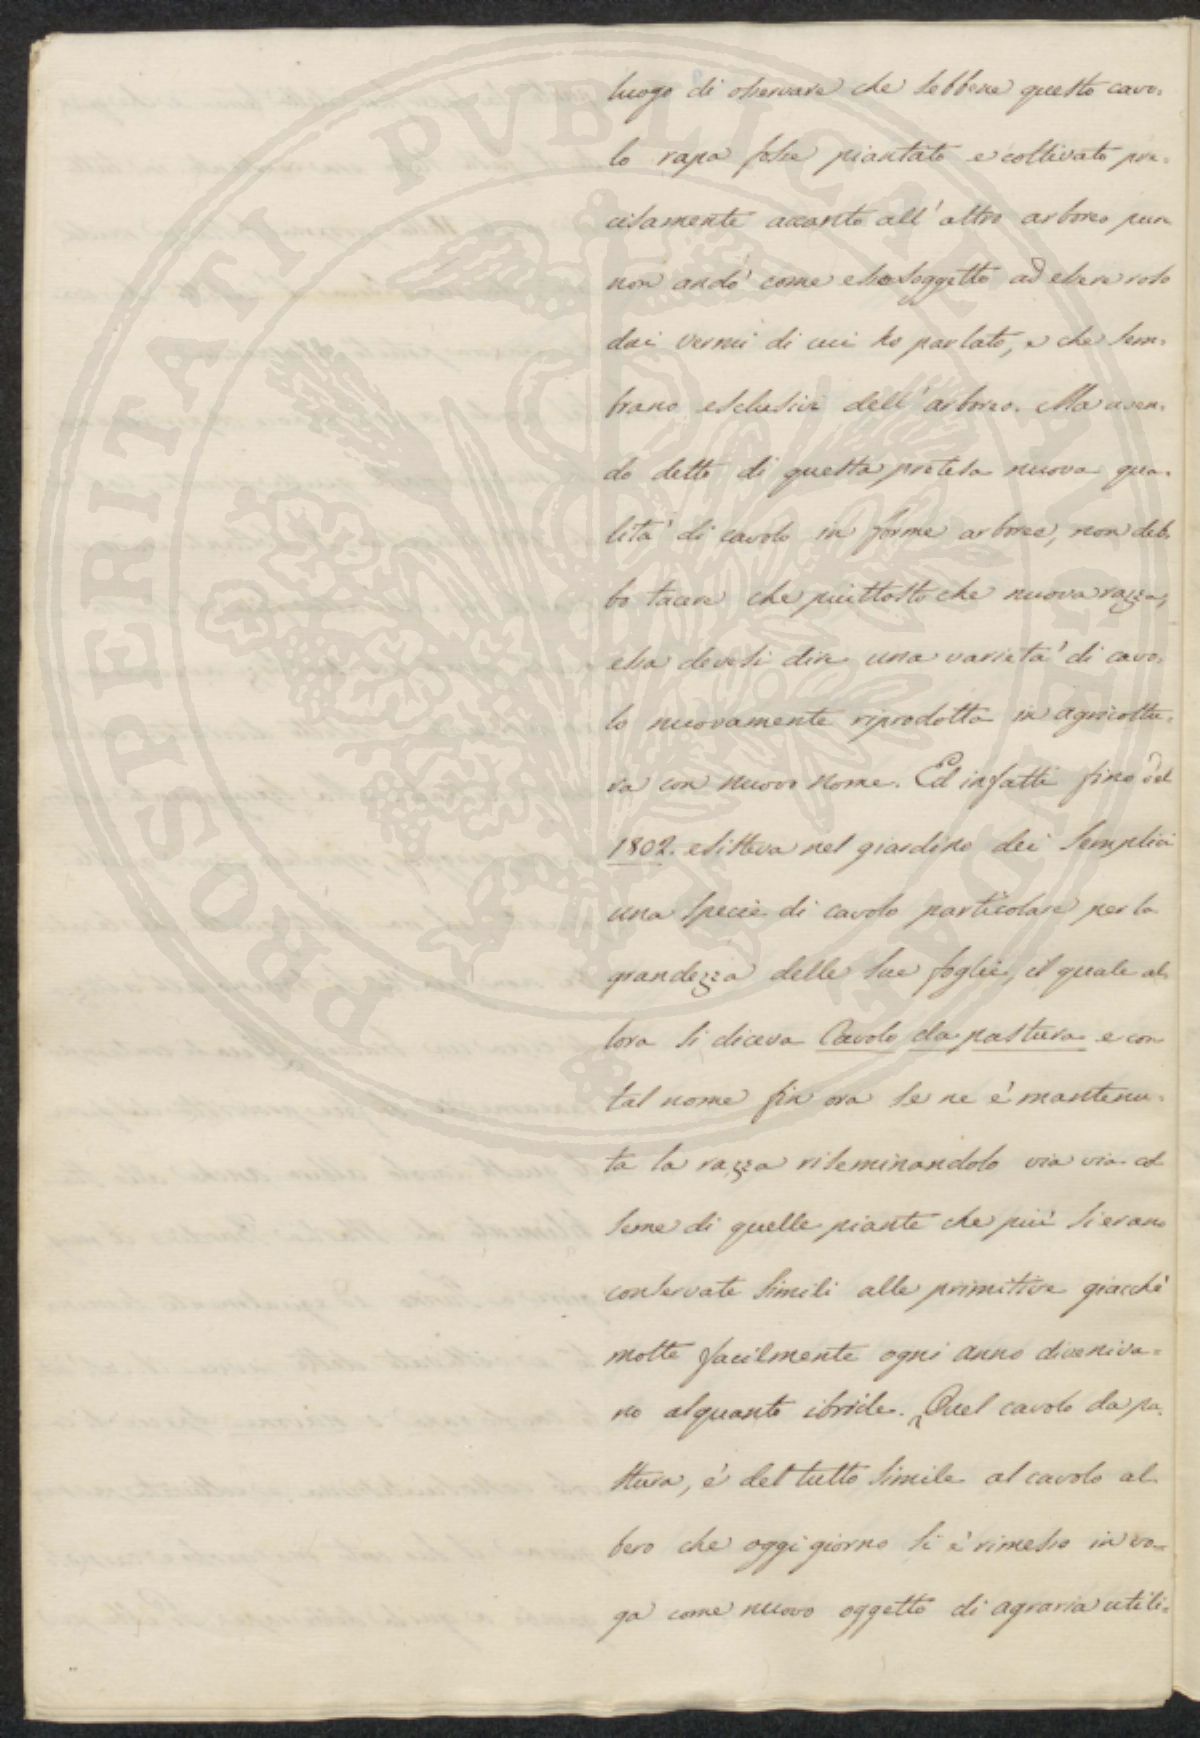 luogo di osservare che sebbene questo cavo-
lo rapa fosse piantato e coltivato pre-
cisamente accanto all'altro arboreo pure
non andò come esso soggetto ad essere roso
dai vermi di cui ho parlato, e che sem-
brano esclusivi dell'arboreo. Ma aven-
do detto di questa pretesa nuova qua-
lità di cavolo in forme arboree, non deb-
bo tacere che piuttosto che nuova razza,
essa devesi dire una varietà di cavo-
lo nuovamente riprodotta in agricoltu-
ra con nuovo nome. Ed infatti fino del
1802. esisteva nel giardino dei Semplici
una specie di cavolo particolare per la
grandezza delle sue foglie, il quale al-
lora si diceva Cavolo da pastura e con
tal nome fin ora se ne è mantenu-
ta la razza riseminandolo via via col
seme di quelle piante che più si erano
conservate simili alle primitive giacchè
molte facilmente ogni anno diveniva-
no alquanto ibride. Quel cavolo da pa-
stura, è del tutto simile al cavolo al-
bero che oggi giorno si è rimesso in vo-
ga come nuovo oggetto di agraria utili-
PROSPERITATI PVBLICAE AVGENDAE